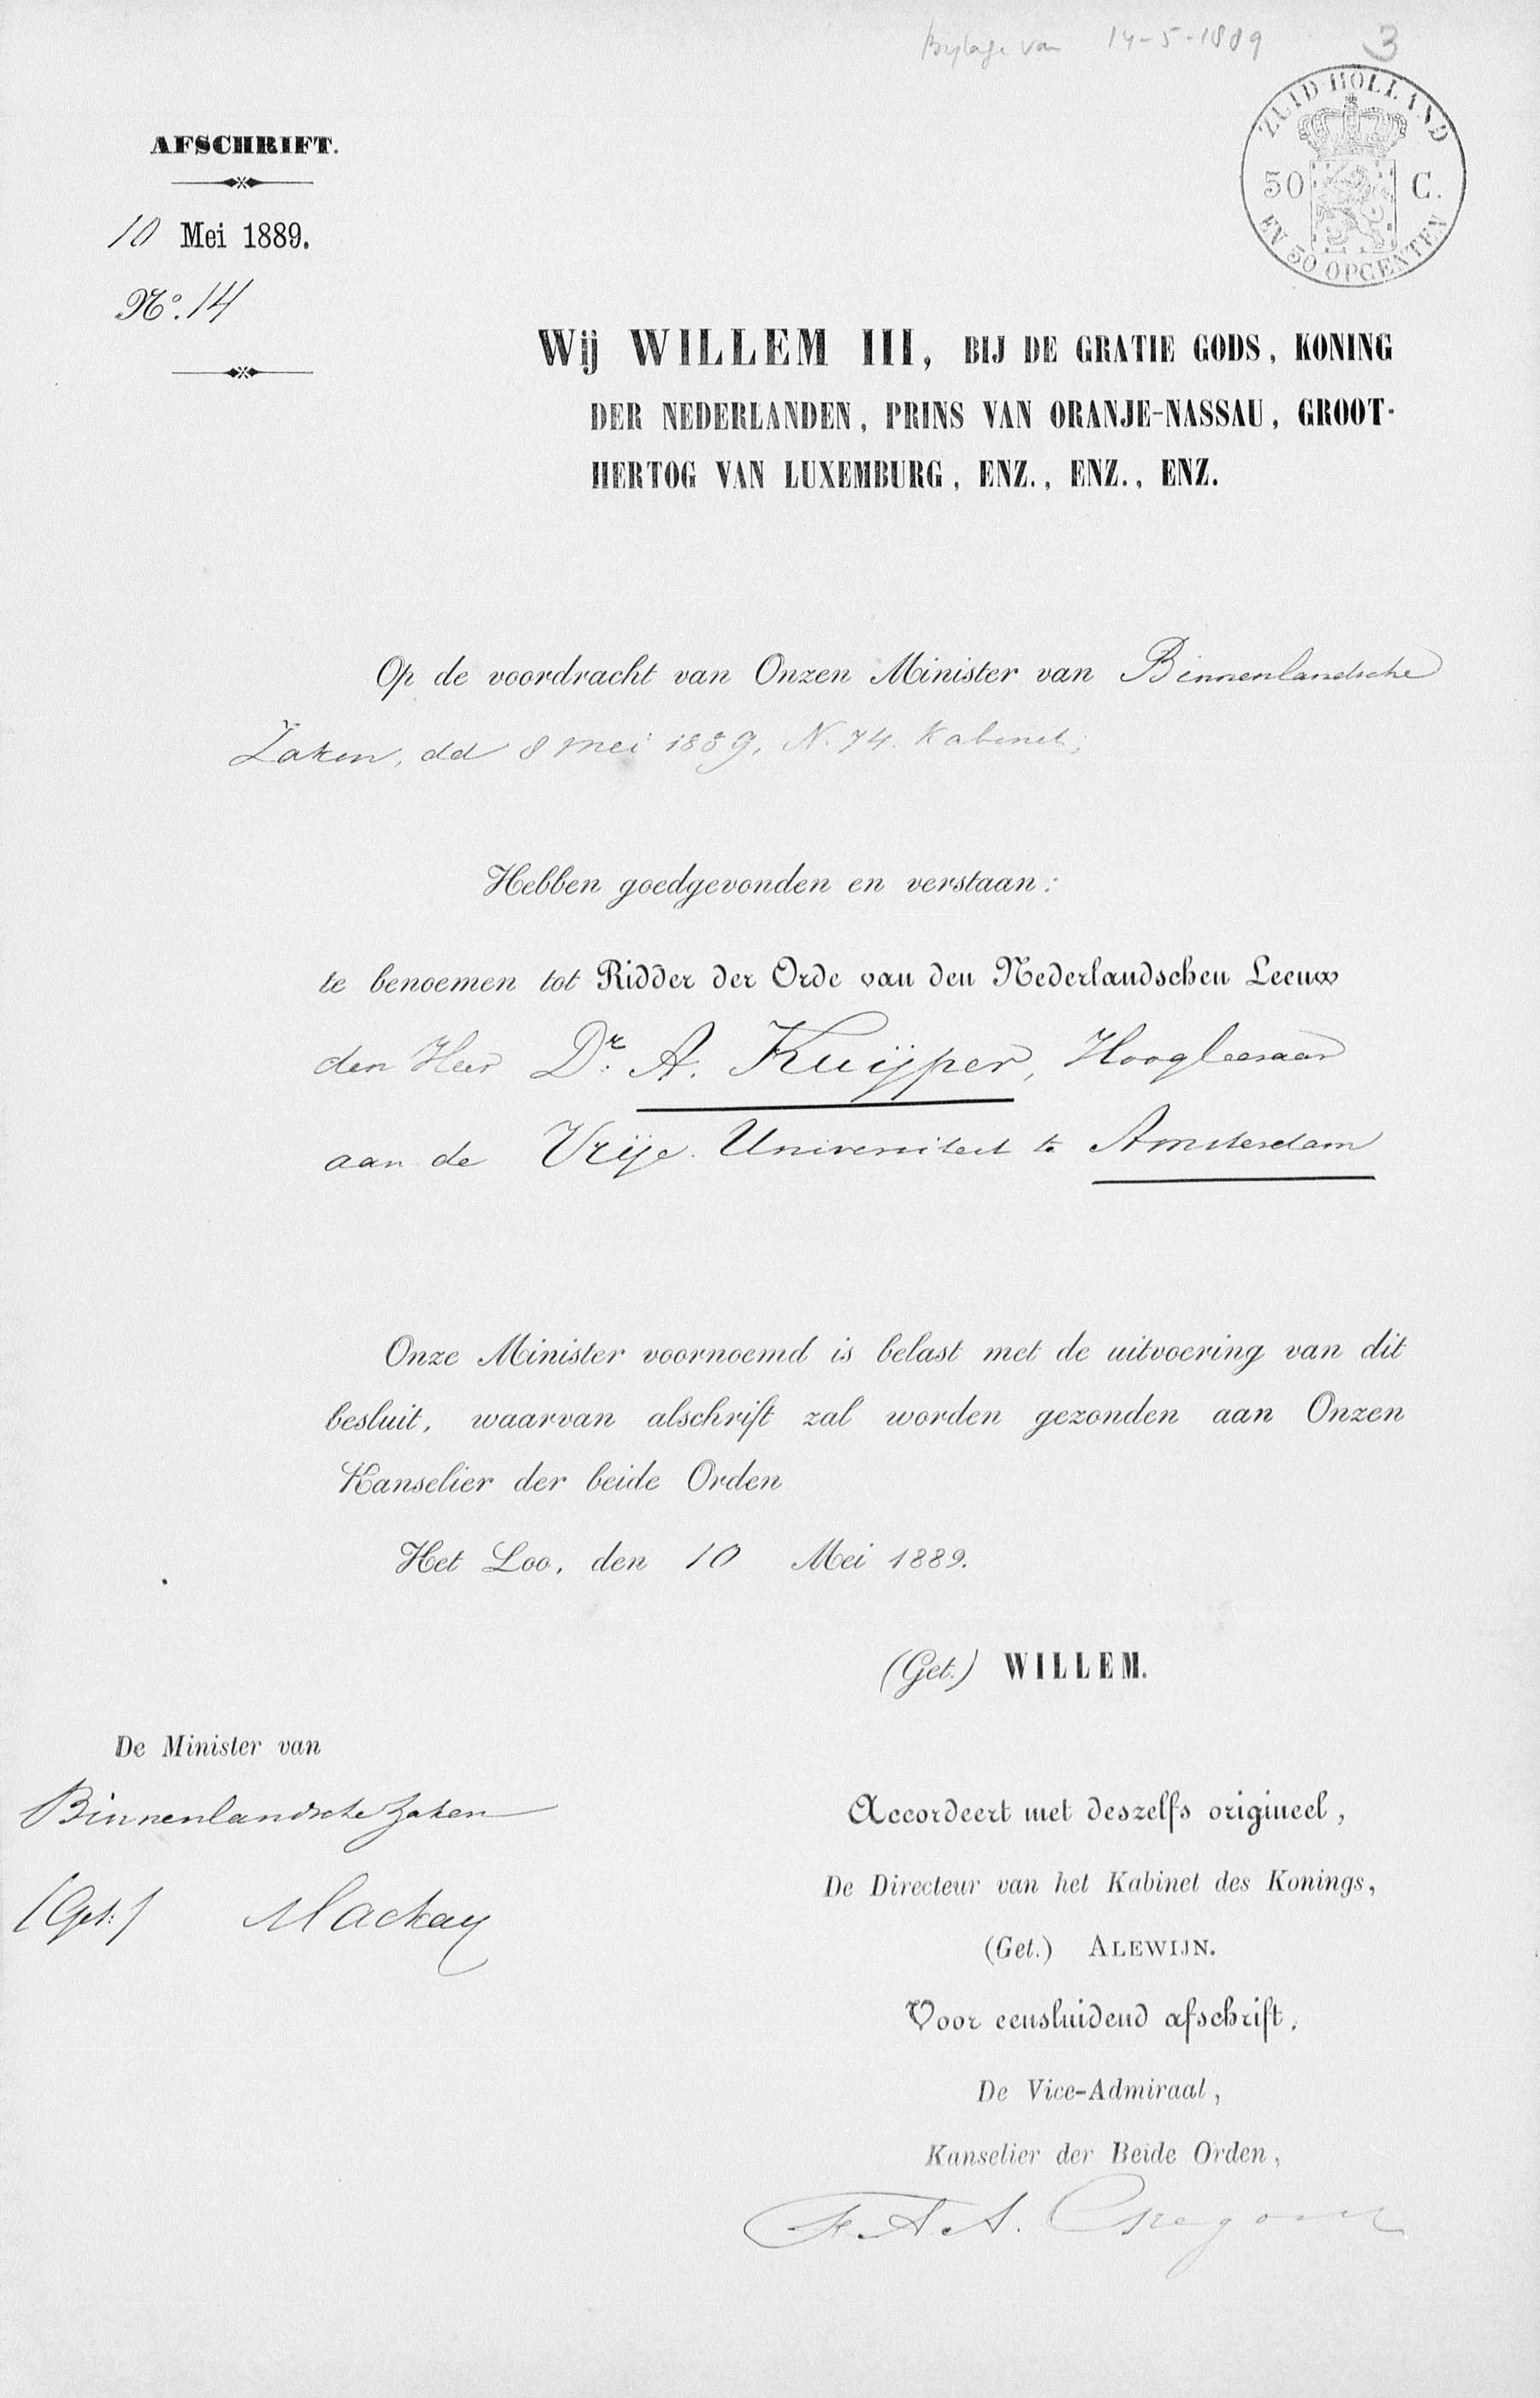 Bijlage van 14-5-1889 3
ZUID HOLLAND
50 C.
EN 50 OPCENTEN
AFSCHRIFT.
10 Mei 1889.
No. 14
Wij WILLEM III, BIJ DE GRATIE GODS, KONING
DER NEDERLANDEN, PRINS VAN ORANJE-NASSAU, GROOT-
HERTOG VAN LUXEMBURG, ENZ., ENZ., ENZ.
Op de voordracht van Onzen Minister van Binnenlandsche
Zaken, dd 8 Mei 1889, N. 74. Kabinet;
Hebben goedgevonden en verstaan:
te benoemen tot Ridder der Orde van den Nederlandschen Leeuw
den Heer Dr. A. Kuijper, Hoogleeraar
aan de Vrije Universiteit te Amsterdam
Onze Minister voornoemd is belast met de uitvoering van dit
besluit, waarvan alschrift zal worden gezonden aan Onzen
Kanselier der beide Orden
Het Loo, den 10 Mei 1889.
(Get.) WILLEM.
De Minister van
Binnenlandsche Zaken
(Get:) Mackay
Accordeert met deszelfs origineel,
De Directeur van het Kabinet des Konings,
(Get.) ALEWIJN.
Voor eensluidend afschrift,
De Vice-Admiraal,
Kanselier der Beide Orden,
F. A. A. Gregory